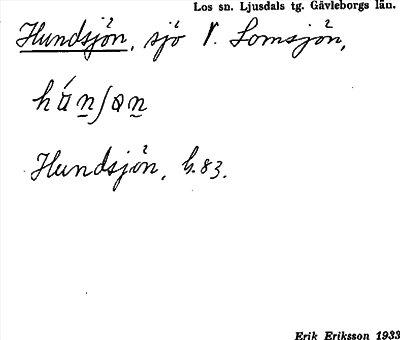 Los sn. Ljusdals tg. Gävleborgs län.
Hundsjön, sjö V. Lomsjön,
Hundsjön, h.83.
Erik Eriksson 1933